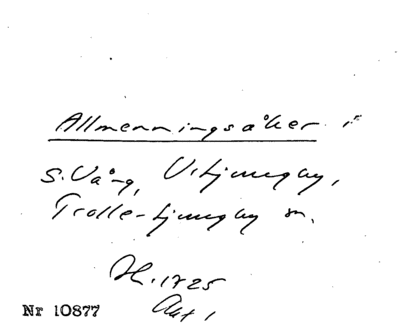 Allmenningsåker i
S. Vång, V. Ljungby,
Trolle-Ljungby sn.
H. 1725
Akt 1
Nr 10877